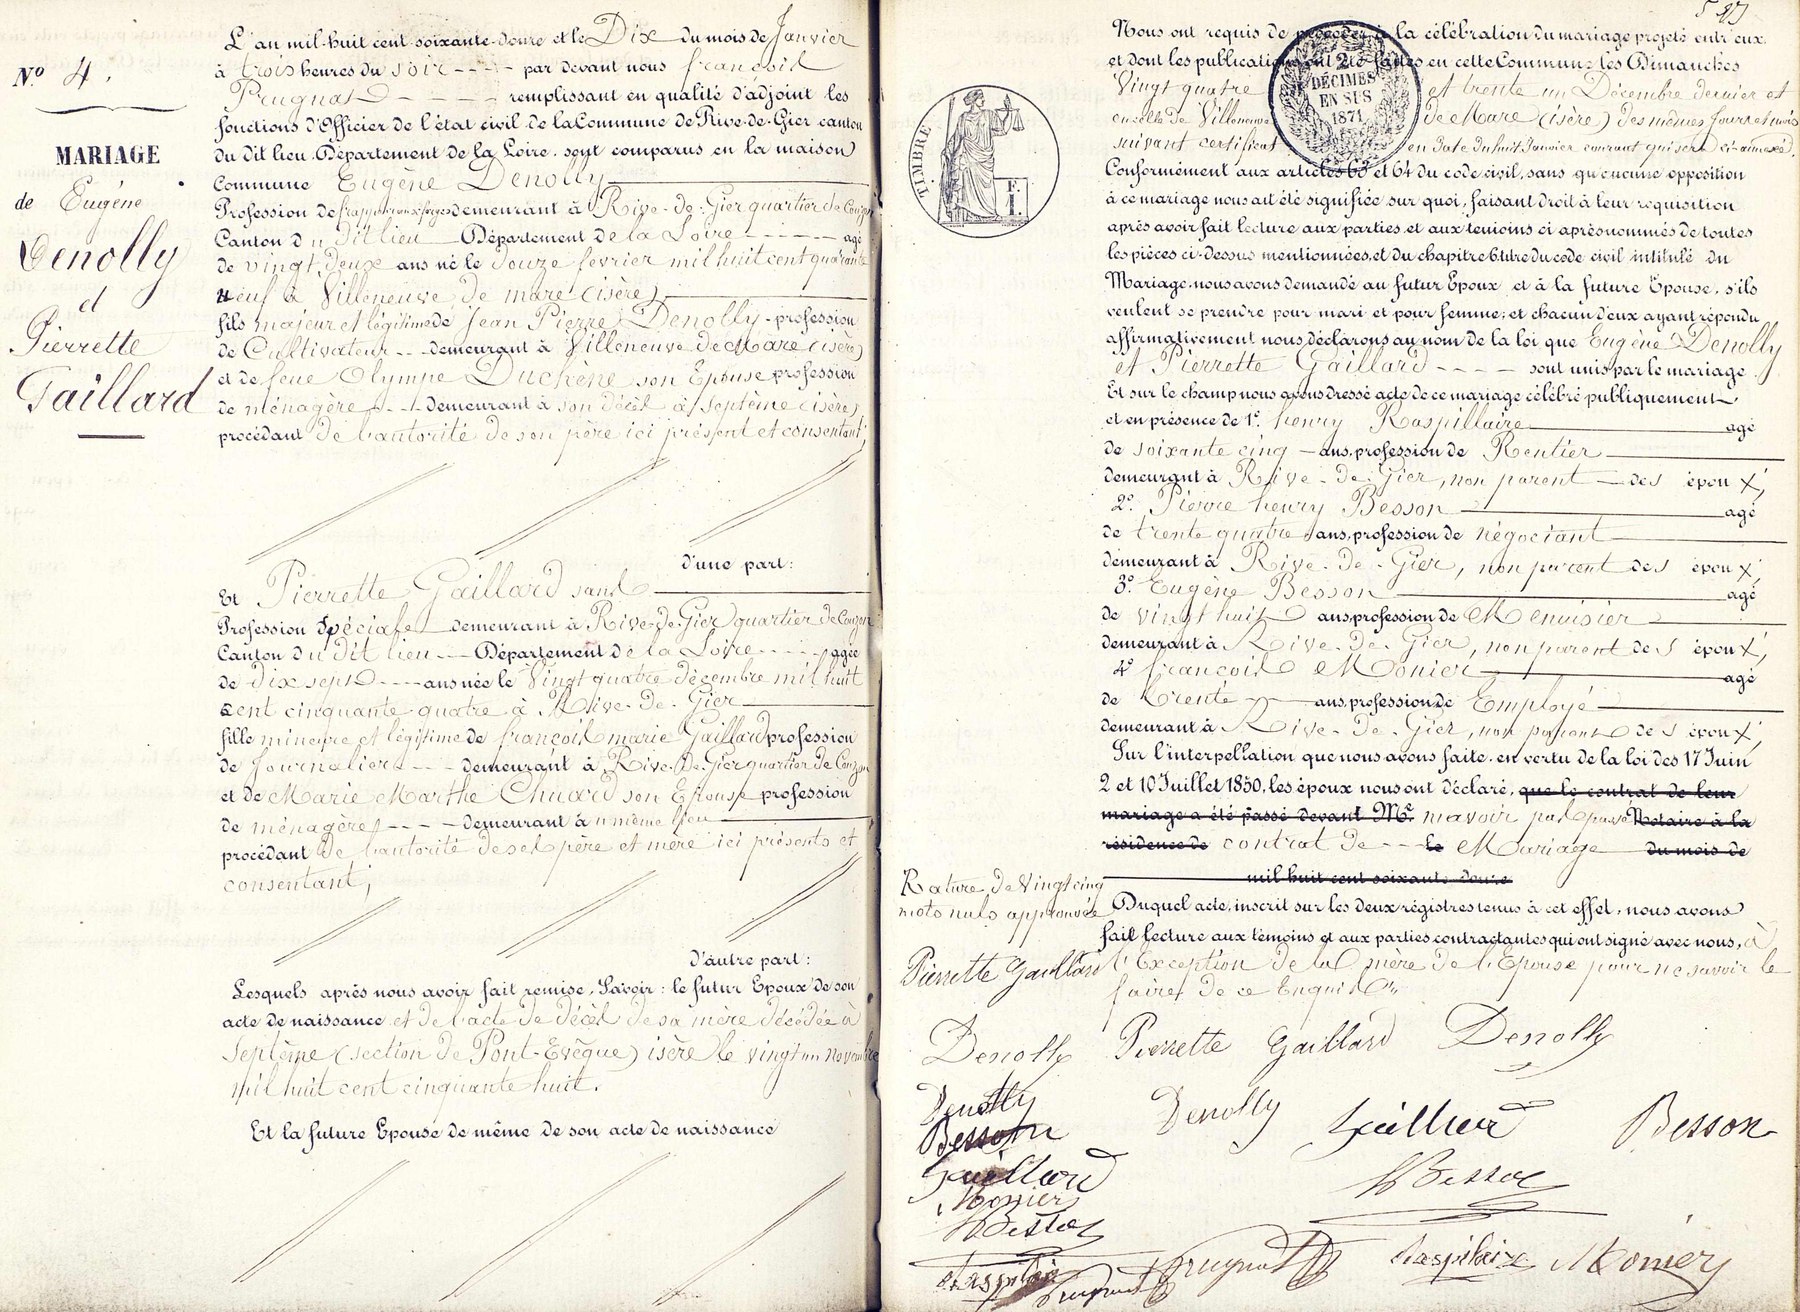 N.º 4.
MARIAGE
de Eugène
Denolly
et
Pierrette
Gaillard
L'an mil-huit cent soixante-douze et le Dix du mois de Janvier
à trois heures du soir - - - - par devant nous françois
Prugnat - - - - - remplissant en qualité d'adjoint les
fonctions d'Officier de l'état civil de la Commune de Rive-de-Gier canton
du dit lieu. Département de la Loire. sont comparus en la maison
Commune Eugène Denolly
Profession de frappeur aux forges demeurant à Rive-de-Gier quartier de Couzon
Canton du dit lieu Département de la Loire - - - - - agé
de vingt deux ans né le douze février mil huit cent quarante
neuf à Villeneuve de mare (isère)
fils majeur et légitime de Jean Pierre Denolly - profession
de Cultivateur - - - demeurant à Villeneuve de Mare (isère)
et de feue Olympe Duchène son Epouse profession
de ménagère - - - demeurant à son décès à Septème (isère)
procédant de l'autorité de son père ici présent et consentant,
d'une part:
Et Pierrette Gaillard sans
Profession Spéciale demeurant à Rive-de-Gier quartier de Couzon
Canton du dit lieu - - Département de la Loire - - - - agée
de dix sept - - - ans née le Vingt quatre décembre mil huit
cent cinquante quatre à Rive-de-Gier
fille mineure et légitime de françois marie Gaillard profession
de Journalier - - - demeurant à Rive-de-Gier quartier de Couzon
et de Marie Marthe Chuard son Epouse profession
de ménagère - - - - demeurant à u même lieu
procédant de l'autorité de ses père et mère ici présents et
consentant,
d'autre part:
Lesquels après nous avoir fait remise, Savoir: le futur Epoux de son
acte de naissance et de l'acte de décès de sa mère décédée à
Septême (section de Pont-Evêque) isère le vingt un novembre
mil huit cent cinquante huit.
Et la future Epouse de même de son acte de naissance
TIMBRE
F.
I.
2
DÉCIMES
EN SUS
1871
Nous ont requis de procéder à la célébration du mariage projeté entr'eux
et dont les publications ont été faites en cette Commune les Dimanches
Vingt quatre et trente un Décembre dernier et
en celle de Villeneuve de Mare (isère) des mêmes jours et mois
suivant certificat en date du huit Janvier courant qui sera ci-annexé.
Conformément aux articles 63 et 64 du code civil, sans qu'aucune opposition
à ce mariage nous ait été signifiée sur quoi, faisant droit à leur réquisition
après avoir fait lecture aux parties et aux témoins ci après nommés de toutes
les pièces ci-dessus mentionnées, et du chapitre 6 titre du code civil intitulé du
Mariage, nous avons demandé au futur Epoux et à la future Epouse, s'ils
veulent se prendre pour mari et pour femme; et chacun d'eux ayant répondu
affirmativement nous déclarons au nom de la loi que Eugène Denolly
et Pierrette Gaillard - - - - sont unis par le mariage.
Et sur le champ nous avons dressé acte de ce mariage célébré publiquement
et en présence de 1.º henry Raspillaire agé
de soixante cinq ans, profession de Rentier
demeurant à Rive-de-Gier, non parent des époux,
2.º Pierre henry Besson agé
de trente quatre ans, profession de négociant
demeurant à Rive-de-Gier, non parent des époux,
3.º Eugène Besson agé
de vingt huit ans profession de Menuisier
demeurant à Rive-de-Gier, non parent des époux,
4.º françois Monier agé
de trente ans, profession de Employé
demeurant à Rive-de-Gier, non parent des époux,
Sur l'interpellation que nous avons faite, en vertu de la loi des 17 Juin
2 et 10 Juillet 1850, les époux nous ont déclaré, que le contrat de leur
mariage a été passé devant Mᵉ n'avoir pas passé Notaire à la
résidence de contrat de - - - le Mariage du mois de
mil huit cent soixante douze
Rature de Vingt cinq
mots nuls approuvée
Duquel acte, inscrit sur les deux régistres tenus à cet effet, nous avons
fait lecture aux témoins et aux parties contractantes qui ont signé avec nous, à
l'Exception de la mère de l'Epouse pour ne savoir le
faire de ce Enquis.
Pierrette Gaillard
Denolly Pierrette Gaillard Denolly
Denolly
Besson
Denolly Gaillard Besson
Gaillard
Monier
H Besson
H Besson
Raspilaire
Prugnat
Prugnat
Raspilaire Monier